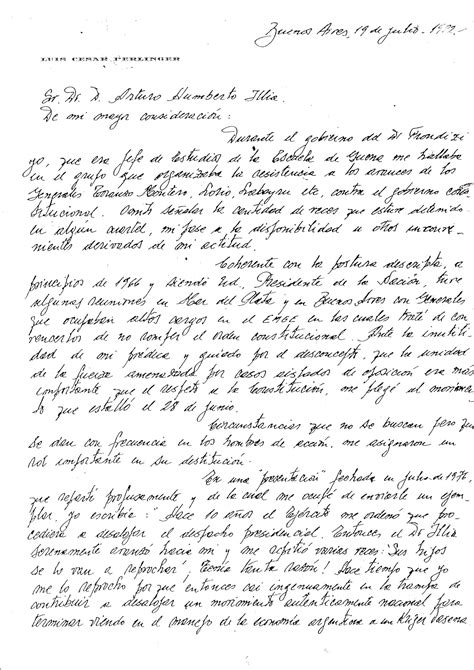 Buenos Aires, 19 de julio - 1982.-
LUIS CESAR PERLINGER
Sr. Dr. D. Arturo Humberto Illia.
De mi mayor consideración:
Durante el gobierno del Dr Frondizi
yo, que era Jefe de Estudios de la Escuela de Guerra me hallaba
en el grupo que organizaba la resistencia a los avances de los
Generales Toranzo Montero, Labayru etc, contra el gobierno cons
titucional. Omito señalar la cantidad de veces que estuve detenido
en algún cuartel, mi pase a la disponibilidad u otros inconve-
nientes derivados de mi actitud.
Coherente con la postura descripta, a
principios de 1966 y siendo Ud. Presidente de la Nación, tuve
algunas reuniones en Mar del Plata y en Buenos Aires con Generales
que ocupaban altos cargos en el EMGE en las cuales traté de con
vencerlos de no romper el orden constitucional. Ante la inutili
dad de mi prédica y guiado por el desconcepto, que la unidad
de la fuerza amenazada por casos aislados de oposición era más
importante que el respeto a la Constitución, me plegué al movimien
to que estalló el 28 de junio.
Circunstancias que no se buscan pero que
se dan con frecuencia en los hombres de acción, me asignaron un
rol importante en su destitución.
En una "presentación" fechada en Julio de 1976,
que repartí profusamente y de la cual me ocupé de enviarle un ejem
plar, yo escribía: "Hace 10 años el Ejército me ordenó que pro
cediera a desalojar el despacho presidencial. Entonces el Dr Illia
serenamente avanzó hacia mí y me repitió varias veces: Sus hijos
se lo van a reprochar; ¡Tenía tanta razón! Hace tiempo que yo
me lo reprocho porque entonces caí ingenuamente en la trampa de
contribuir a desalojar un movimiento auténticamente nacional para
terminar viendo en el manejo de la economía argentina a un Krieger Vasena